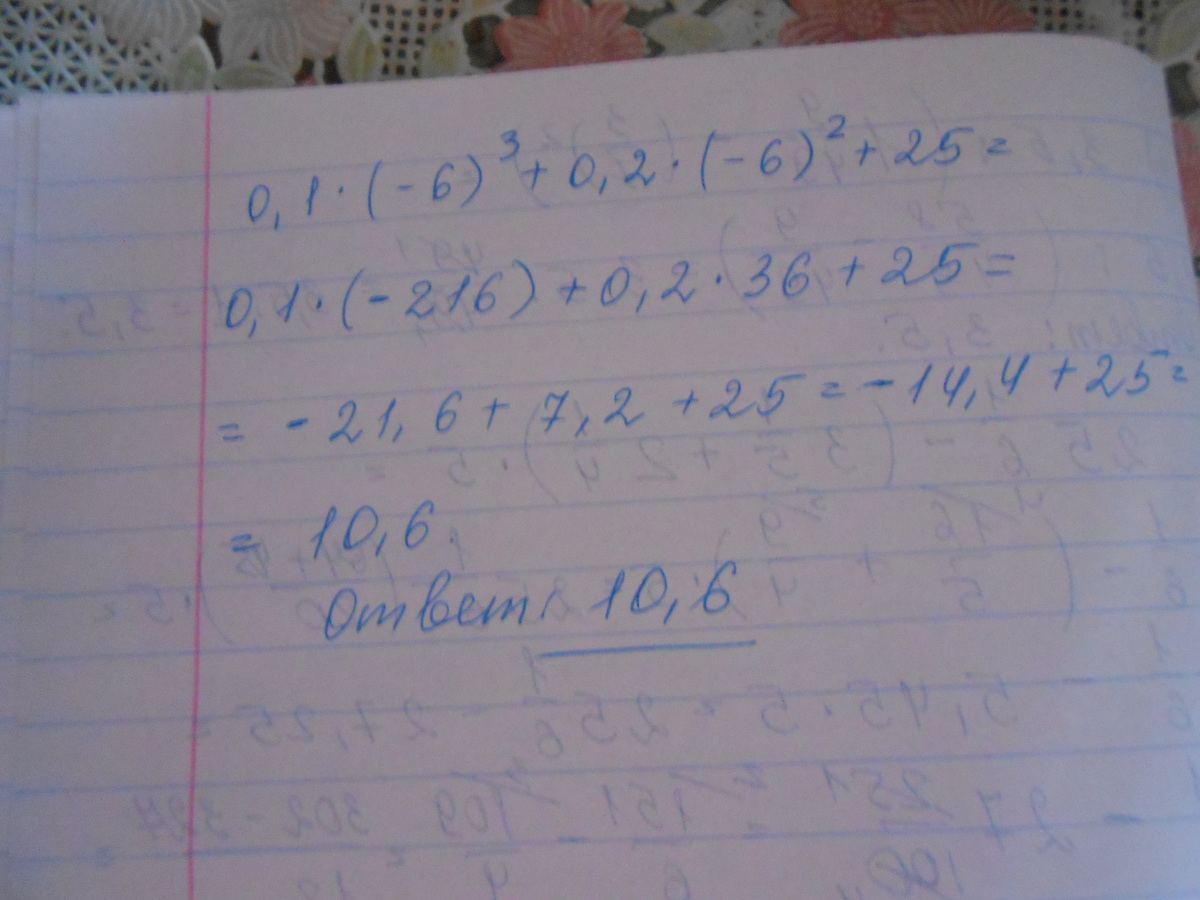 0,1·(-6)³+0,2·(-6)²+25=
0,1·(-216)+0,2·36+25=
= -21,6+7,2+25=-14,4+25=
= 10,6.
Ответ: 10,6